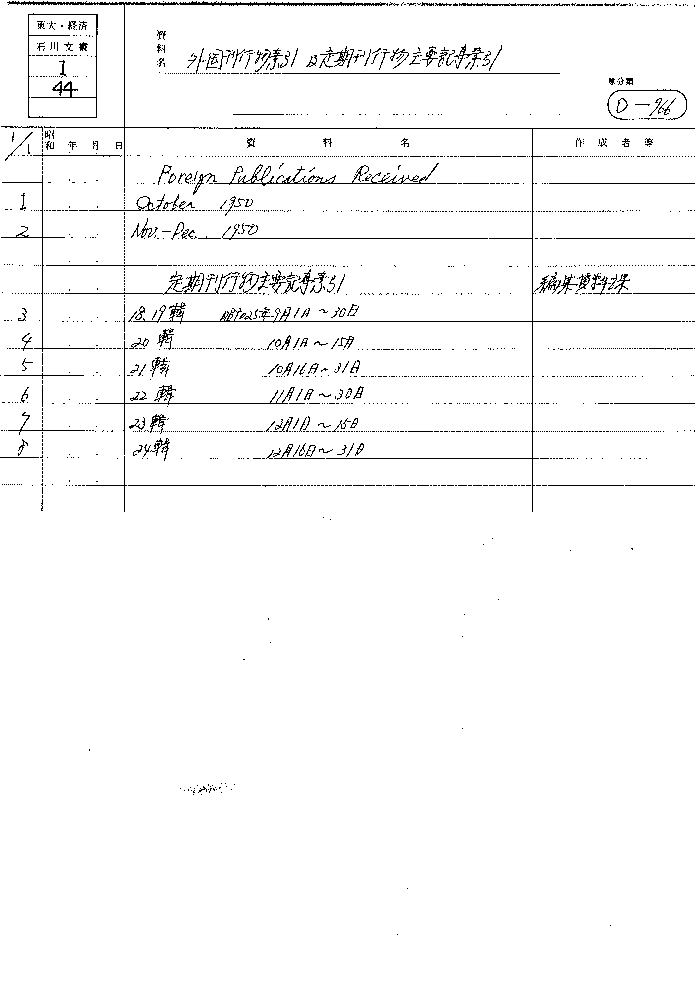 東大・経済
石川文書
I
44
資料名
外国刊行物索引 及定期刊行物主要記事索引
原分類
D-966
1/1
昭和 年 月 日 資 料 名 作 成 者 等
Foreign Publications Received
1 October 1950
2 Nov.-Dec. 1950
定期刊行物主要記事索引 編集資料課
3 18.19輯 昭和25年9月1日～30日
4 20輯 10月1日～15日
5 21輯 10月16日～31日
6 22輯 11月1日～30日
7 23輯 12月1日～15日
8 24輯 12月16日～31日